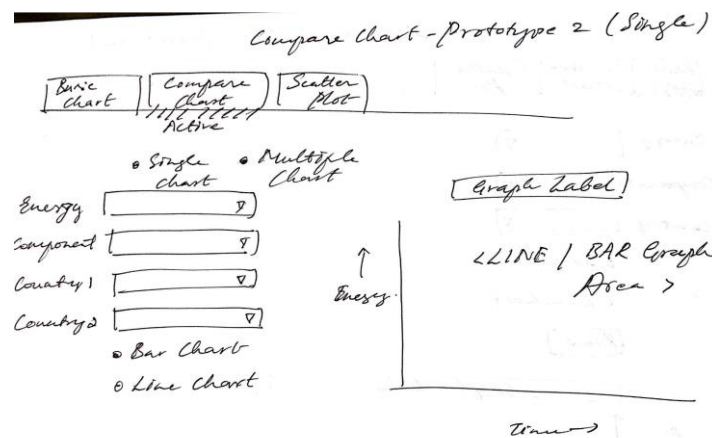 Compare Chart - Prototype 2 (Single)
Basic Chart
Compare Chart
Scatter Plot
Active
Single Chart
Multiple Chart
Energy
Component
Country 1
Country 2
Bar Chart
Line Chart
Graph Label
<LINE / BAR Graph
Area >
Energy
Time